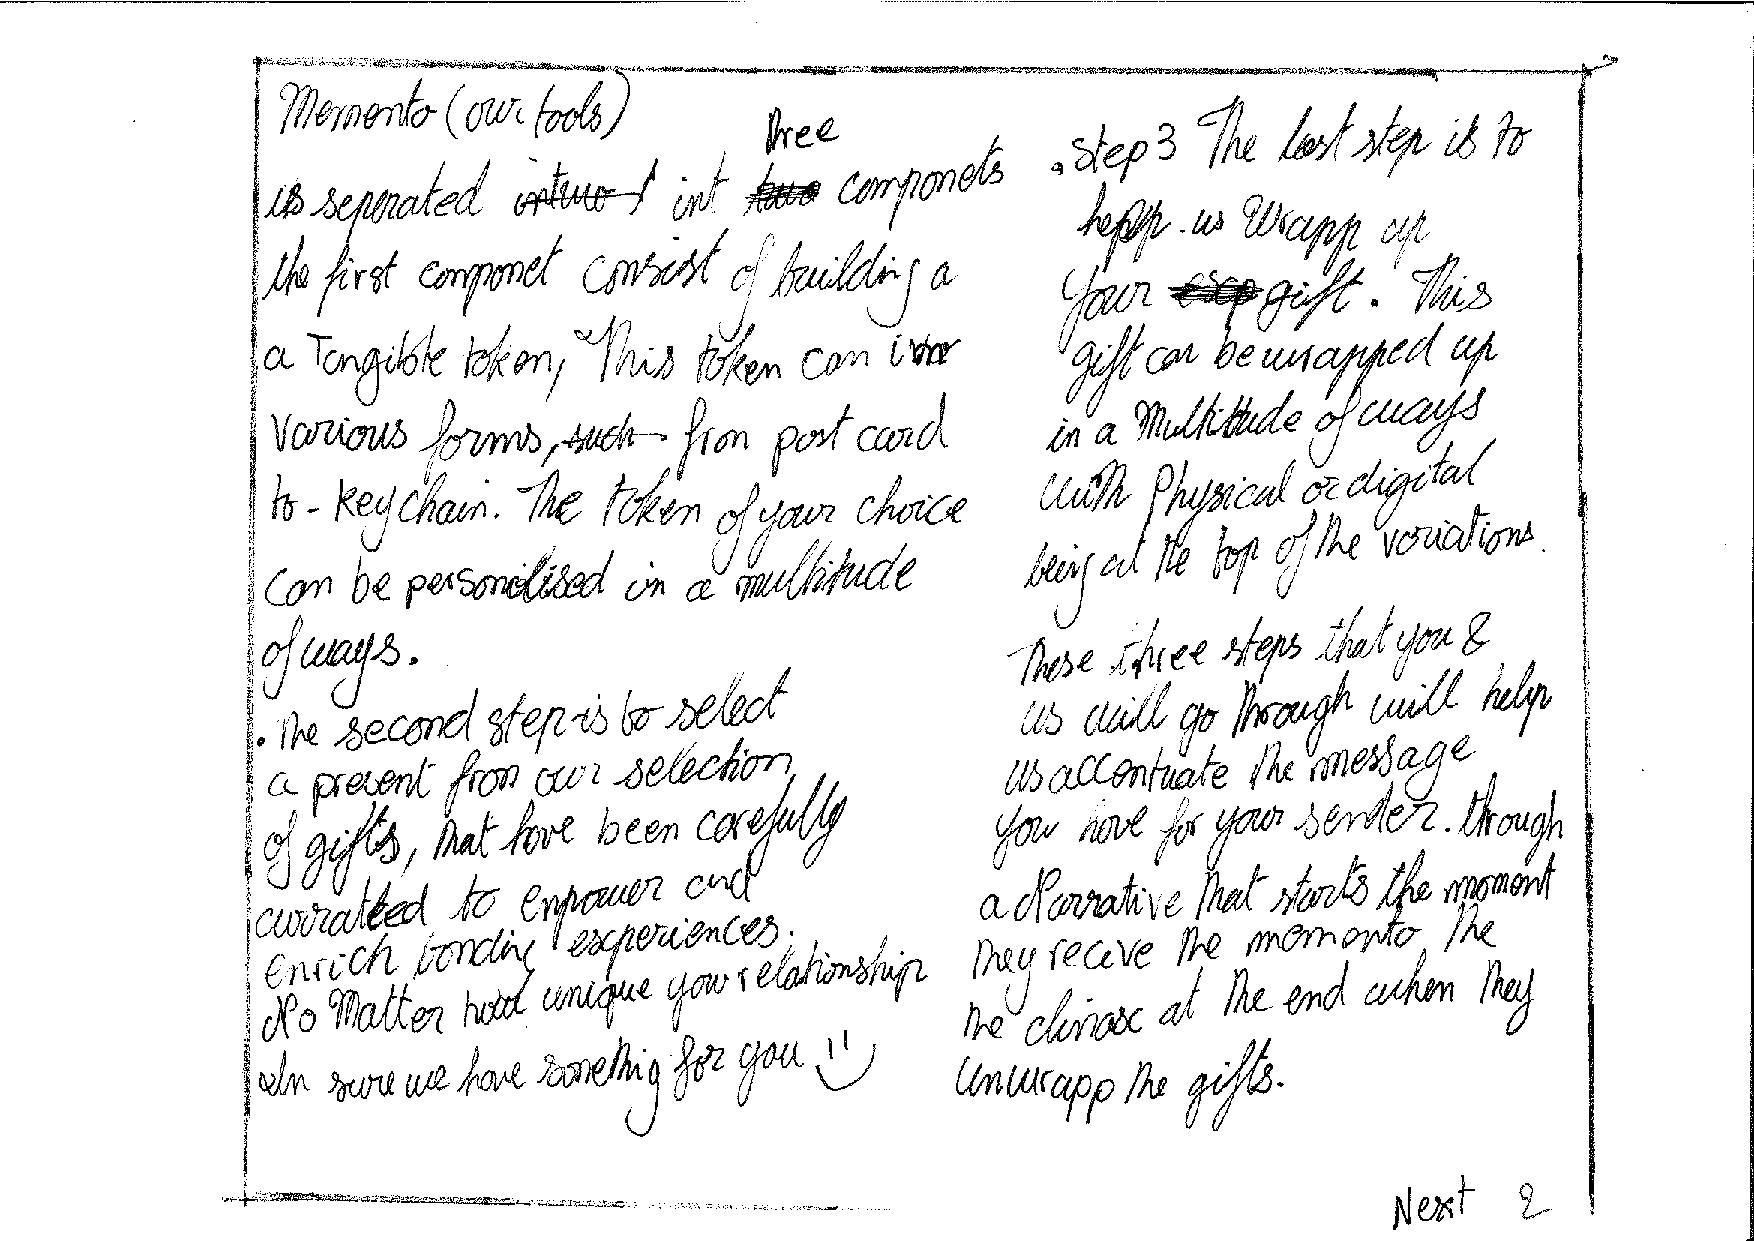 Memento (our tools)
three
is seperated into two int two componets
the first componet consist of building a
a Tangible token, This token can in
various forms, such from post card
to - keychain. The token of your choice
can be personilised in a multitude
of ways.
. The second step is to select
a present from our selection
of gifts, that have been carefully
currated to enpower and
enrich bonding experiences.
No Matter how unique your relationship
Im sure we have something for you
. Step 3 The last step is to
help us Wrapp up
your exp gift. This
gift can be wrapped up
in a Multitude of ways
with Physical or digital
being at the top of the variations.
These three steps that you &
us will go through will help
us accentuate the message
you have for your sender. through
a Narrative that starts the moment
they recive the memento, The
the climax at the end when they
unwrapp the gifts.
Next 2